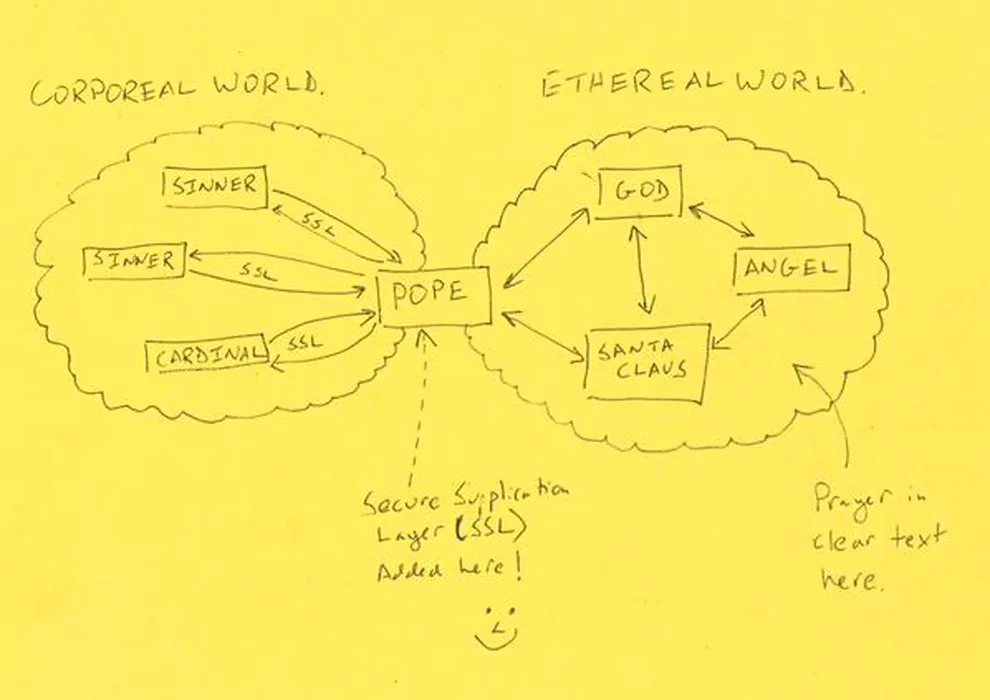 CORPOREAL WORLD.
ETHEREAL WORLD.
SINNER
SSL
SINNER
SSL
CARDINAL
SSL
POPE
GOD
ANGEL
SANTA
CLAUS
Secure Supplication
Layer (SSL)
Added here!
Prayer in
clear text
here.